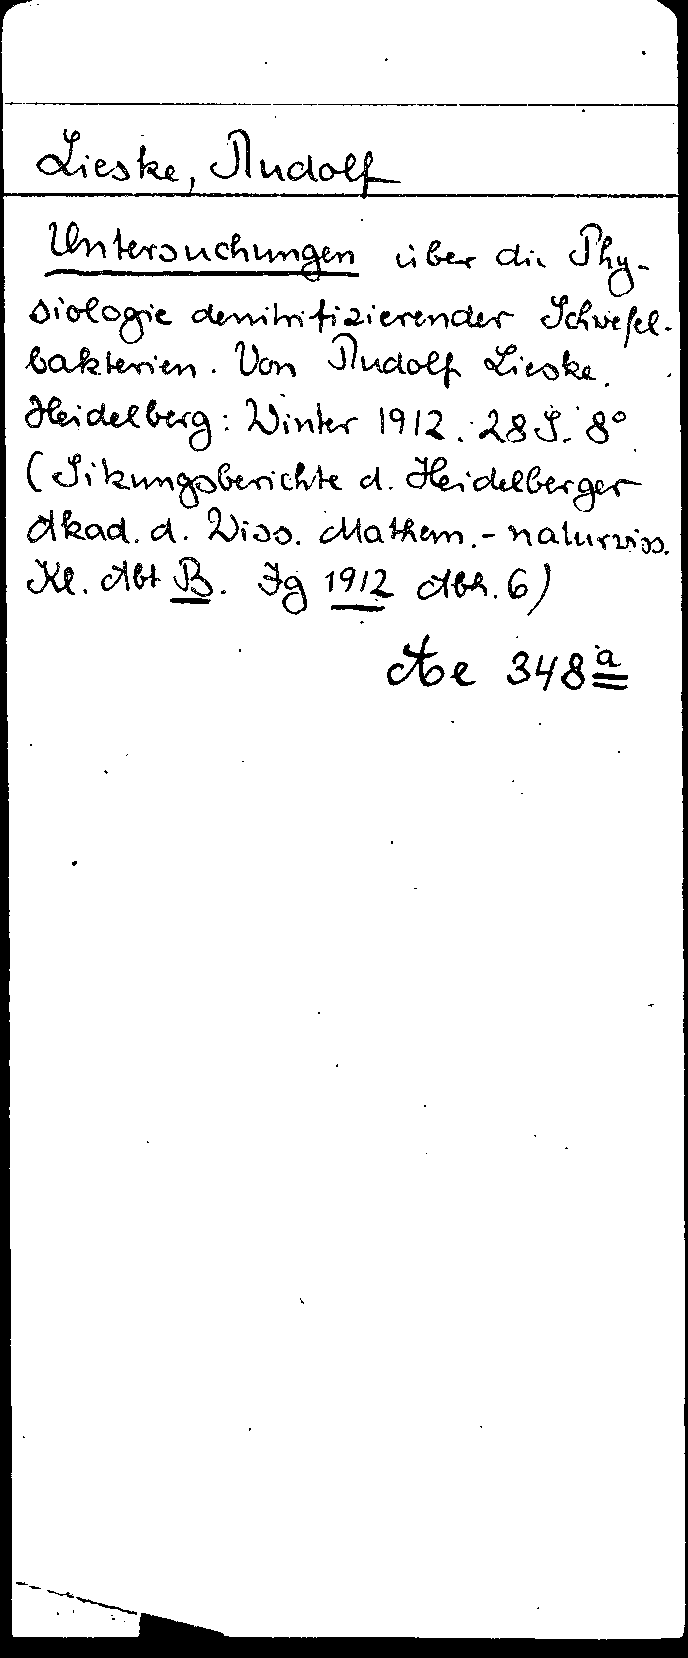 Lieske, Rudolf
Untersuchungen über die Phy-
siologie denitrifizierender Schwefel-
bakterien. Von Rudolf Lieske.
Heidelberg: Winter 1912. 28 S. 8°
(Sitzungsberichte d. Heidelberger
Akad. d. Wiss. Mathem.-naturwiss.
Kl. Abt B. Jg 1912 Abh. 6)
Ae 348a